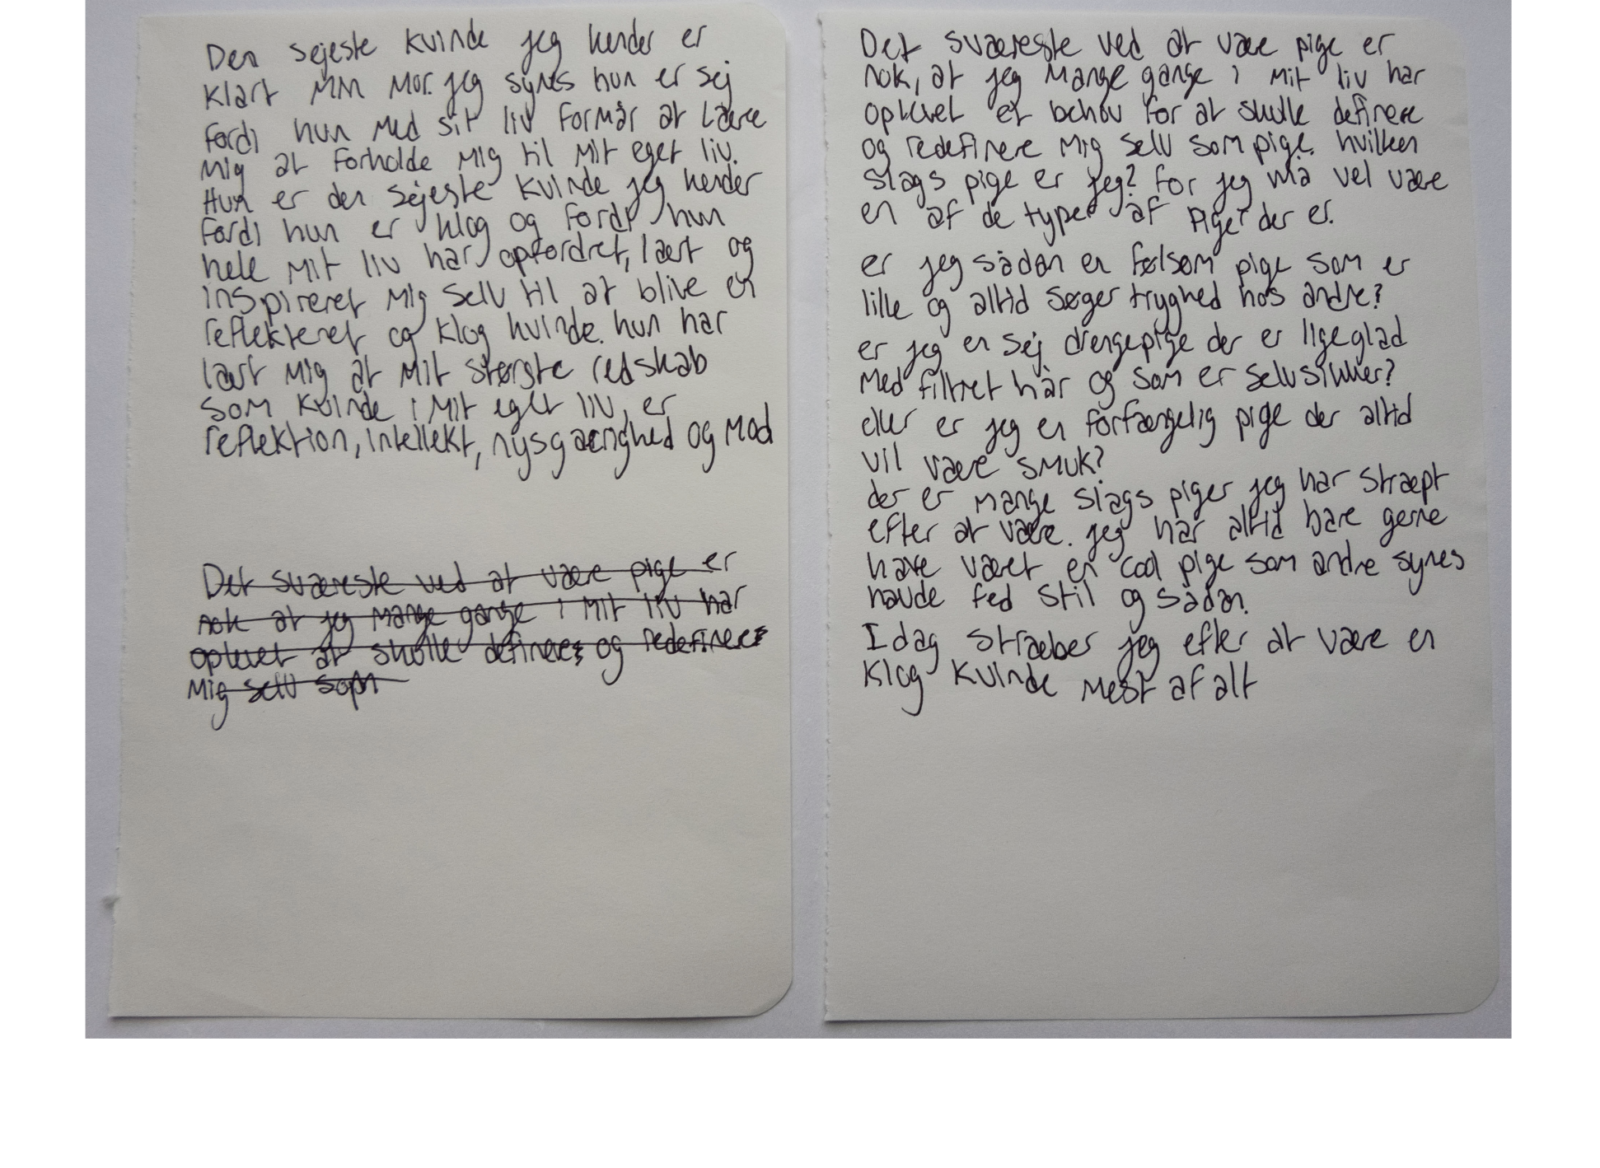 Den sejeste kvinde jeg kender er
klart min mor. jeg synes hun er sej
fordi hun med sit liv formår at lære
mig at forholde mig til mit eget liv.
Hun er den sejeste kvinde jeg kender
fordi hun er klog og fordi hun
hele mit liv har opfordret, lært og
inspireret mig selv til at blive en
reflekteret og klog kvinde. hun har
lært mig at mit største redskab
som kvinde i mit eget liv, er
reflektion, intellekt, nysgærrighed og mod
Det sværeste ved at være pige er
nok at jeg mange gange i mit liv har
oplevet at skulle definere og redefinere
mig selv som
Det sværeste ved at være pige er
nok, at jeg mange gange i mit liv har
oplevet et behov for at skulle definere
og redefinere mig selv som pige. hvilken
slags pige er jeg? for jeg må vel være
en af de typer af piger der er.
er jeg sådan en følsom pige som er
lille og altid søger tryghed hos andre?
er jeg en sej drengepige der er ligeglad
med filtret hår og som er selvsikker?
eller er jeg en forfængelig pige der altid
vil være smuk?
der er mange slags piger jeg har stræpt
efter at være. jeg har altid bare gerne
have været en cool pige som andre synes
havde fed stil og sådan.
Idag stræber jeg efter at være en
klog kvinde mest af alt